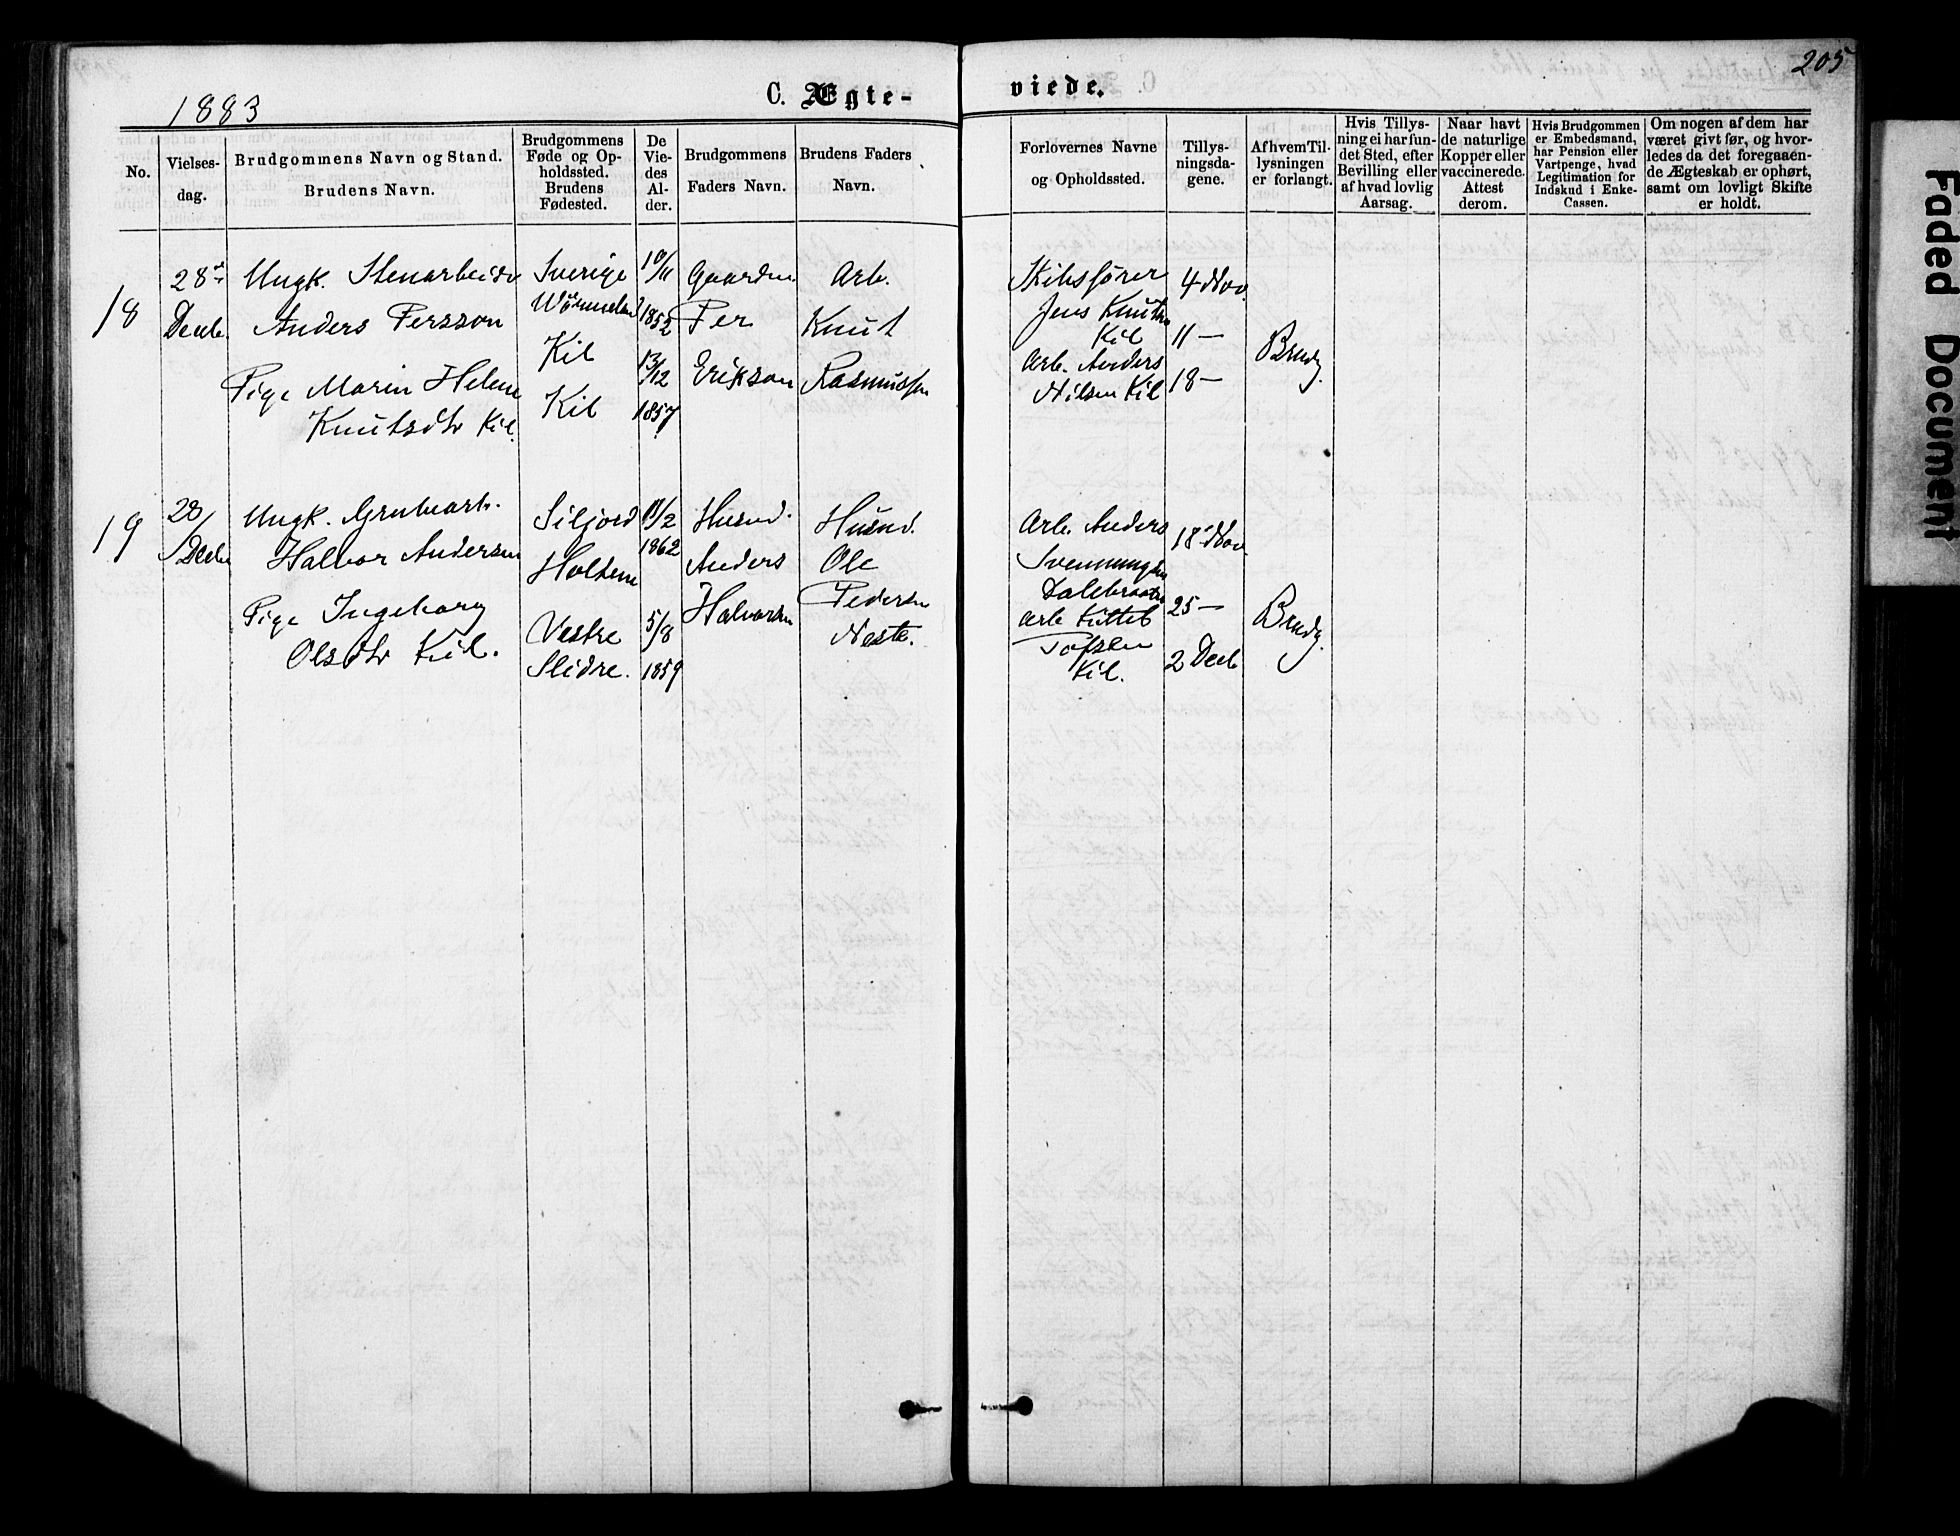 205
1883
C. Ægte-
viede.
No.
Vielses-
dag.
Brudgommens Navn og Stand.
Brudens Navn.
Brudgommens
Føde og Op-
holdssted.
Brudens
Fødested.
De
Vie-
des
Al-
der.
Brudgommens
Faders Navn.
Brudens Faders
Navn.
Forlovernes Navne
og Opholdssted.
Tillys-
ningsda-
gene.
Af hvem Til-
lysningen
er forlangt.
Hvis Tillys-
ning ei har fun-
det Sted, efter
Bevilling eller
af hvad lovlig
Aarsag.
Naar havt
de naturlige
Kopper eller
vaccinerede.
Attest
derom.
Hvis Brudgommen
er Embedsmand,
har Pension eller
Vartpenge, hvad
Legitimation for
Indskud i Enke-
Cassen.
Om nogen af dem har
været givt før, og hvor-
ledes da det foregaaen-
de Ægteskab er ophørt,
samt om lovligt Skifte
er holdt.
18
28de
Decb.
Ungk. Stenarbeider
Anders Persson
Pige Marin Helene
Knutsdtr Kil.
Sverige
Wärmeland
Kil
Kil
10/11
1852
13/12
1857
Gaardm.
Per
Erikson
Arb.
Knut
Rasmussen
Skibsfører
Jens Knutsen
Kil
Arb. Anders
Nilsen Kil
4 Nov.
11 —
18 —
Brudg.
19
28/
Decbr
Ungk. Grubearb.
Halvor Andersen
Pige Ingeborg
Olsdtr Kil.
Siljord
Holtene
Vestre
Slidre.
/2
1862
5/8
1859
Husmd.
Anders
Halvorsen
Husmd.
Ole
Pedersen
Neste.
Arb. Anders
Svennungsen
Dalebraaten
Arb Kittel
Tofsen
Kil.
18 Nov
25 —
2 Decb
Brudg.
Faded Document